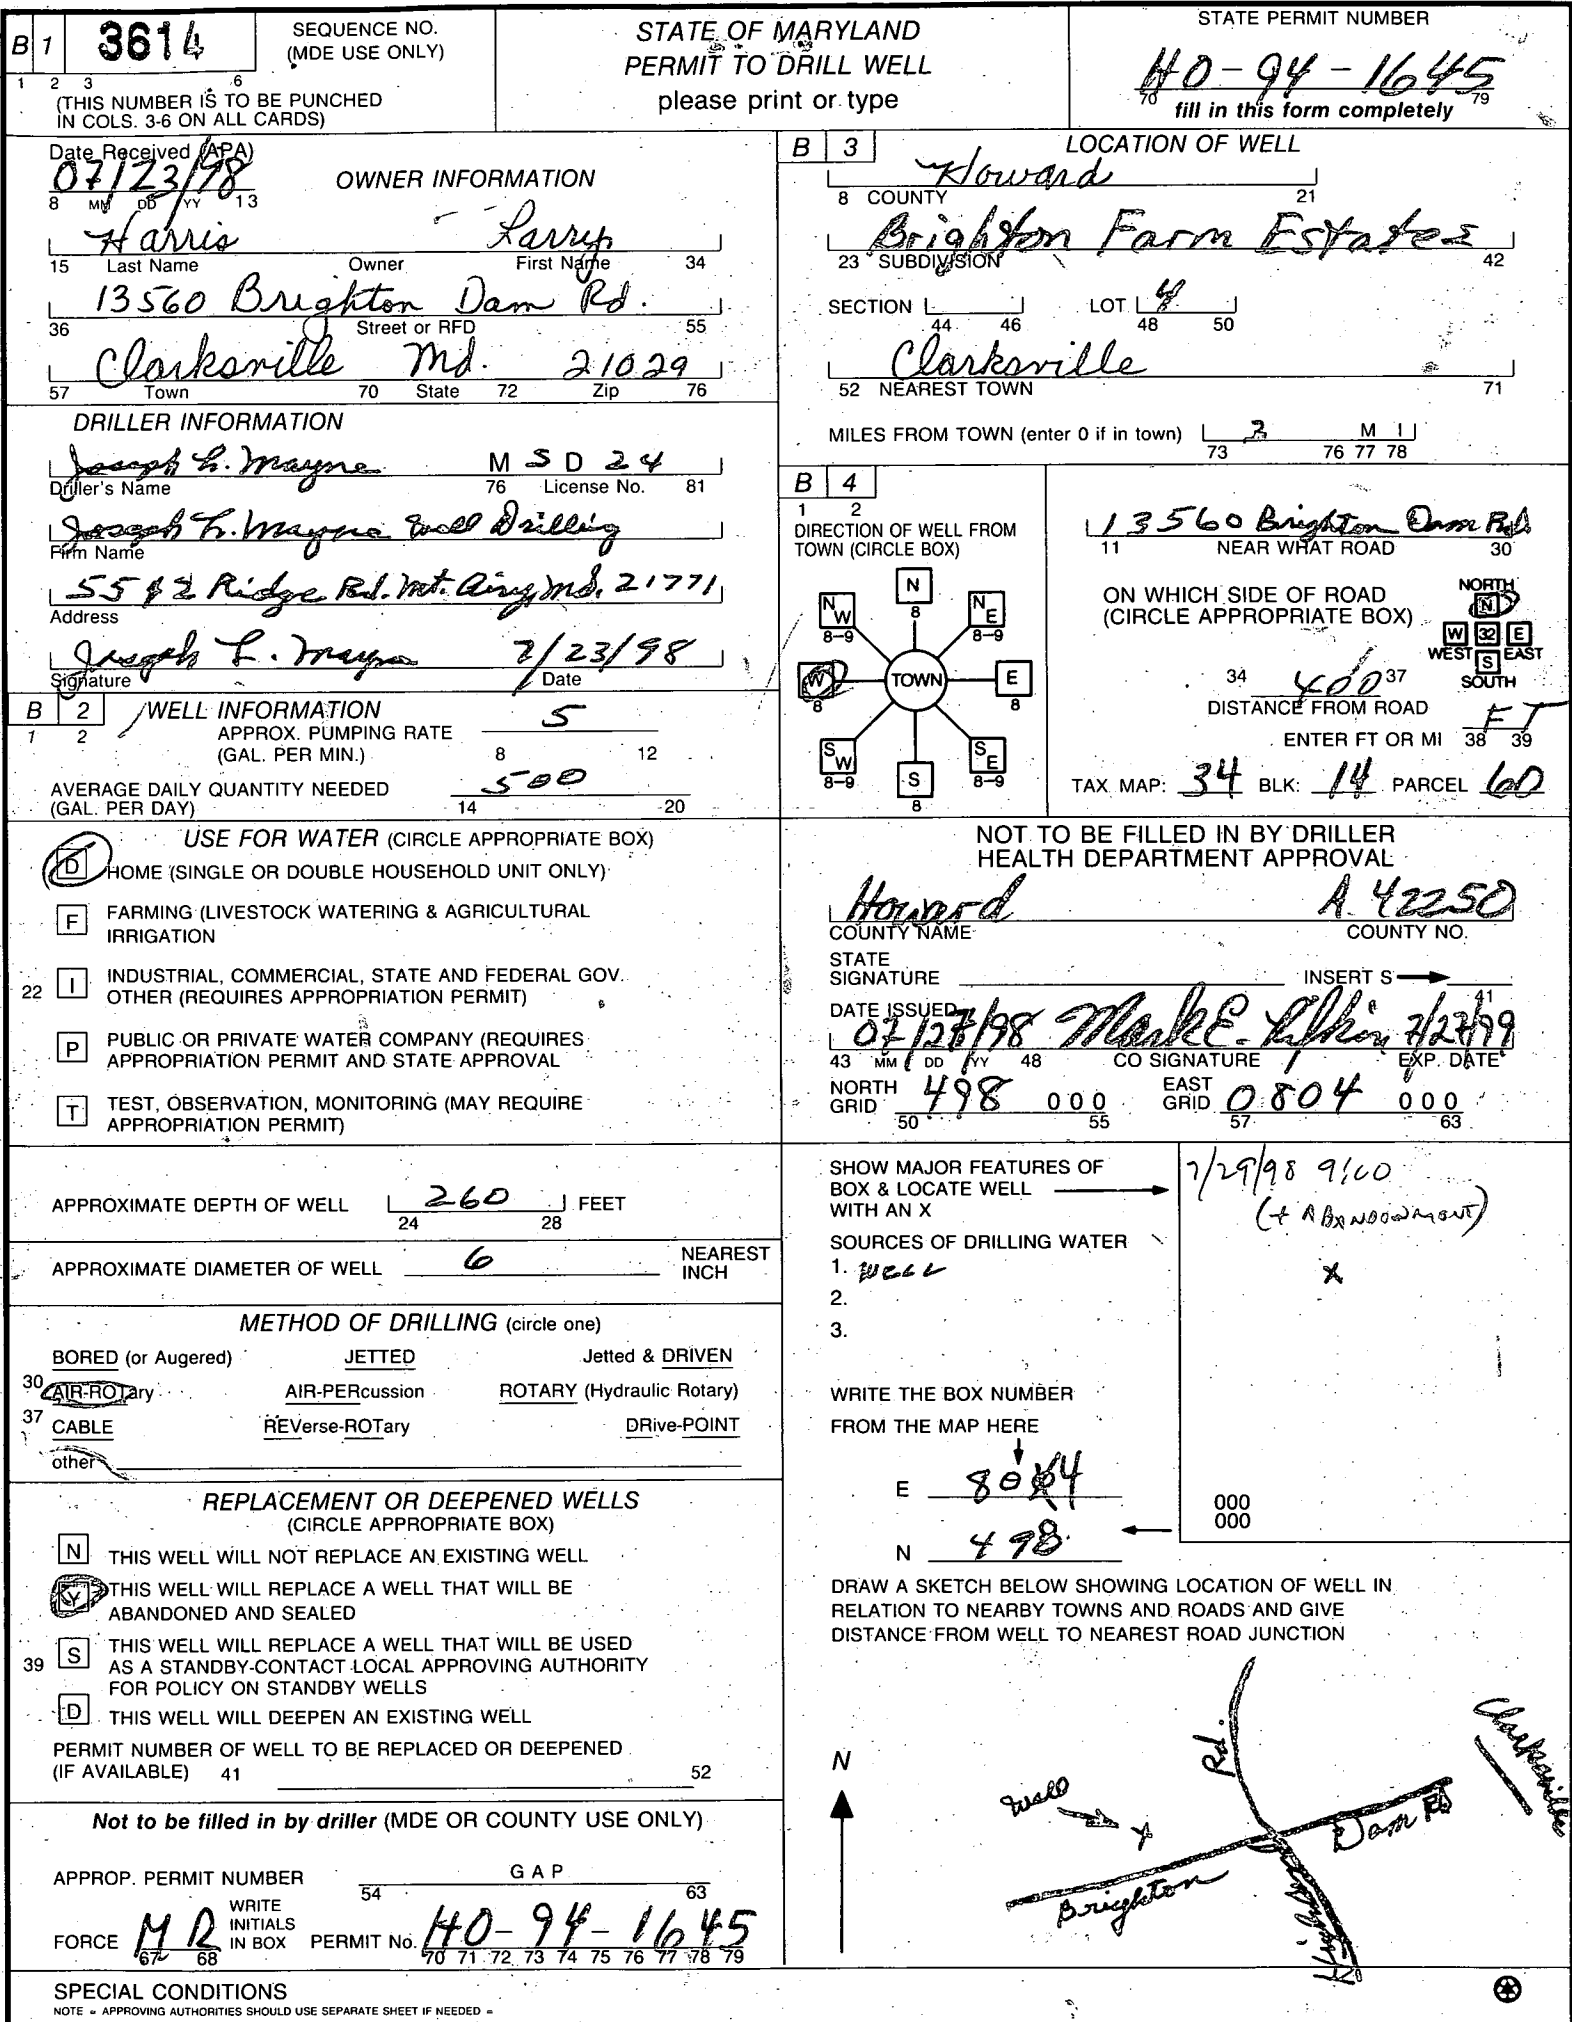 B 1 3614 SEQUENCE NO.
(MDE USE ONLY)
1 2 3 6
(THIS NUMBER IS TO BE PUNCHED
IN COLS. 3-6 ON ALL CARDS)
STATE OF MARYLAND
PERMIT TO DRILL WELL
please print or type
STATE PERMIT NUMBER
HO-94-1645
70 79
fill in this form completely
Date Received (APA)
07/23/98
8 MM DD YY 13
OWNER INFORMATION
Harris Larry
15 Last Name Owner First Name 34
13560 Brighton Dam Rd.
36 Street or RFD 55
Clarksville Md. 21029
57 Town 70 State 72 Zip 76
DRILLER INFORMATION
Joseph L. Mayne M S D 24
Driller's Name 76 License No. 81
Joseph L. Mayne Well Drilling
Firm Name
5512 Ridge Rd. Mt. Airy, Md. 21771
Address
Joseph L. Mayne 7/23/98
Signature Date
B 2 WELL INFORMATION
1 2
APPROX. PUMPING RATE 5
(GAL. PER MIN.) 8 12
AVERAGE DAILY QUANTITY NEEDED 500
(GAL. PER DAY) 14 20
USE FOR WATER (CIRCLE APPROPRIATE BOX)
D HOME (SINGLE OR DOUBLE HOUSEHOLD UNIT ONLY)
F FARMING (LIVESTOCK WATERING & AGRICULTURAL
IRRIGATION
22 I INDUSTRIAL, COMMERCIAL, STATE AND FEDERAL GOV.
OTHER (REQUIRES APPROPRIATION PERMIT)
P PUBLIC OR PRIVATE WATER COMPANY (REQUIRES
APPROPRIATION PERMIT AND STATE APPROVAL
T TEST, OBSERVATION, MONITORING (MAY REQUIRE
APPROPRIATION PERMIT)
APPROXIMATE DEPTH OF WELL 260 FEET
24 28
APPROXIMATE DIAMETER OF WELL 6 NEAREST
INCH
METHOD OF DRILLING (circle one)
BORED (or Augered) JETTED Jetted & DRIVEN
30 AIR-ROTary AIR-PERcussion ROTARY (Hydraulic Rotary)
37 CABLE REVerse-ROTary DRive-POINT
other
REPLACEMENT OR DEEPENED WELLS
(CIRCLE APPROPRIATE BOX)
N THIS WELL WILL NOT REPLACE AN EXISTING WELL
Y THIS WELL WILL REPLACE A WELL THAT WILL BE
ABANDONED AND SEALED
39 S THIS WELL WILL REPLACE A WELL THAT WILL BE USED
AS A STANDBY-CONTACT LOCAL APPROVING AUTHORITY
FOR POLICY ON STANDBY WELLS
D THIS WELL WILL DEEPEN AN EXISTING WELL
PERMIT NUMBER OF WELL TO BE REPLACED OR DEEPENED
(IF AVAILABLE) 41 52
Not to be filled in by driller (MDE OR COUNTY USE ONLY)
APPROP. PERMIT NUMBER G A P
54 63
FORCE MR WRITE
INITIALS
IN BOX PERMIT No. HO-94-1645
67 68 70 71 72 73 74 75 76 77 78 79
SPECIAL CONDITIONS
NOTE = APPROVING AUTHORITIES SHOULD USE SEPARATE SHEET IF NEEDED =
B 3 LOCATION OF WELL
Howard
8 COUNTY 21
Brighton Farm Estates
23 SUBDIVISION 42
SECTION LOT 4
44 46 48 50
Clarksville
52 NEAREST TOWN 71
MILES FROM TOWN (enter 0 if in town) 2 M I
73 76 77 78
B 4
1 2
DIRECTION OF WELL FROM
TOWN (CIRCLE BOX)
N
8
NW
8-9
NE
8-9
W
8
TOWN
E
8
SW
8-9
S
8
SE
8-9
13560 Brighton Dam Rd
11 NEAR WHAT ROAD 30
ON WHICH SIDE OF ROAD
(CIRCLE APPROPRIATE BOX)
NORTH
N
W 32 E
WEST S EAST
SOUTH
34 400 37
DISTANCE FROM ROAD
FT
ENTER FT OR MI 38 39
TAX MAP: 34 BLK: 14 PARCEL 60
NOT TO BE FILLED IN BY DRILLER
HEALTH DEPARTMENT APPROVAL
Howard A 42250
COUNTY NAME COUNTY NO.
STATE
SIGNATURE INSERT S
41
DATE ISSUED
07/27/98 Mark E. Rifkin 7/27/99
43 MM DD YY 48 CO SIGNATURE EXP. DATE
NORTH
GRID 498 000 EAST
GRID 0804 000
50 55 57 63
SHOW MAJOR FEATURES OF
BOX & LOCATE WELL
WITH AN X
7/29/98 9:00
(+ ABANDONMENT)
X
SOURCES OF DRILLING WATER
1. WELL
2.
3.
WRITE THE BOX NUMBER
FROM THE MAP HERE
E 804
N 498
000
000
DRAW A SKETCH BELOW SHOWING LOCATION OF WELL IN
RELATION TO NEARBY TOWNS AND ROADS AND GIVE
DISTANCE FROM WELL TO NEAREST ROAD JUNCTION
N
Well
X
Rd.
Clarksville
Brighton Dam Rd